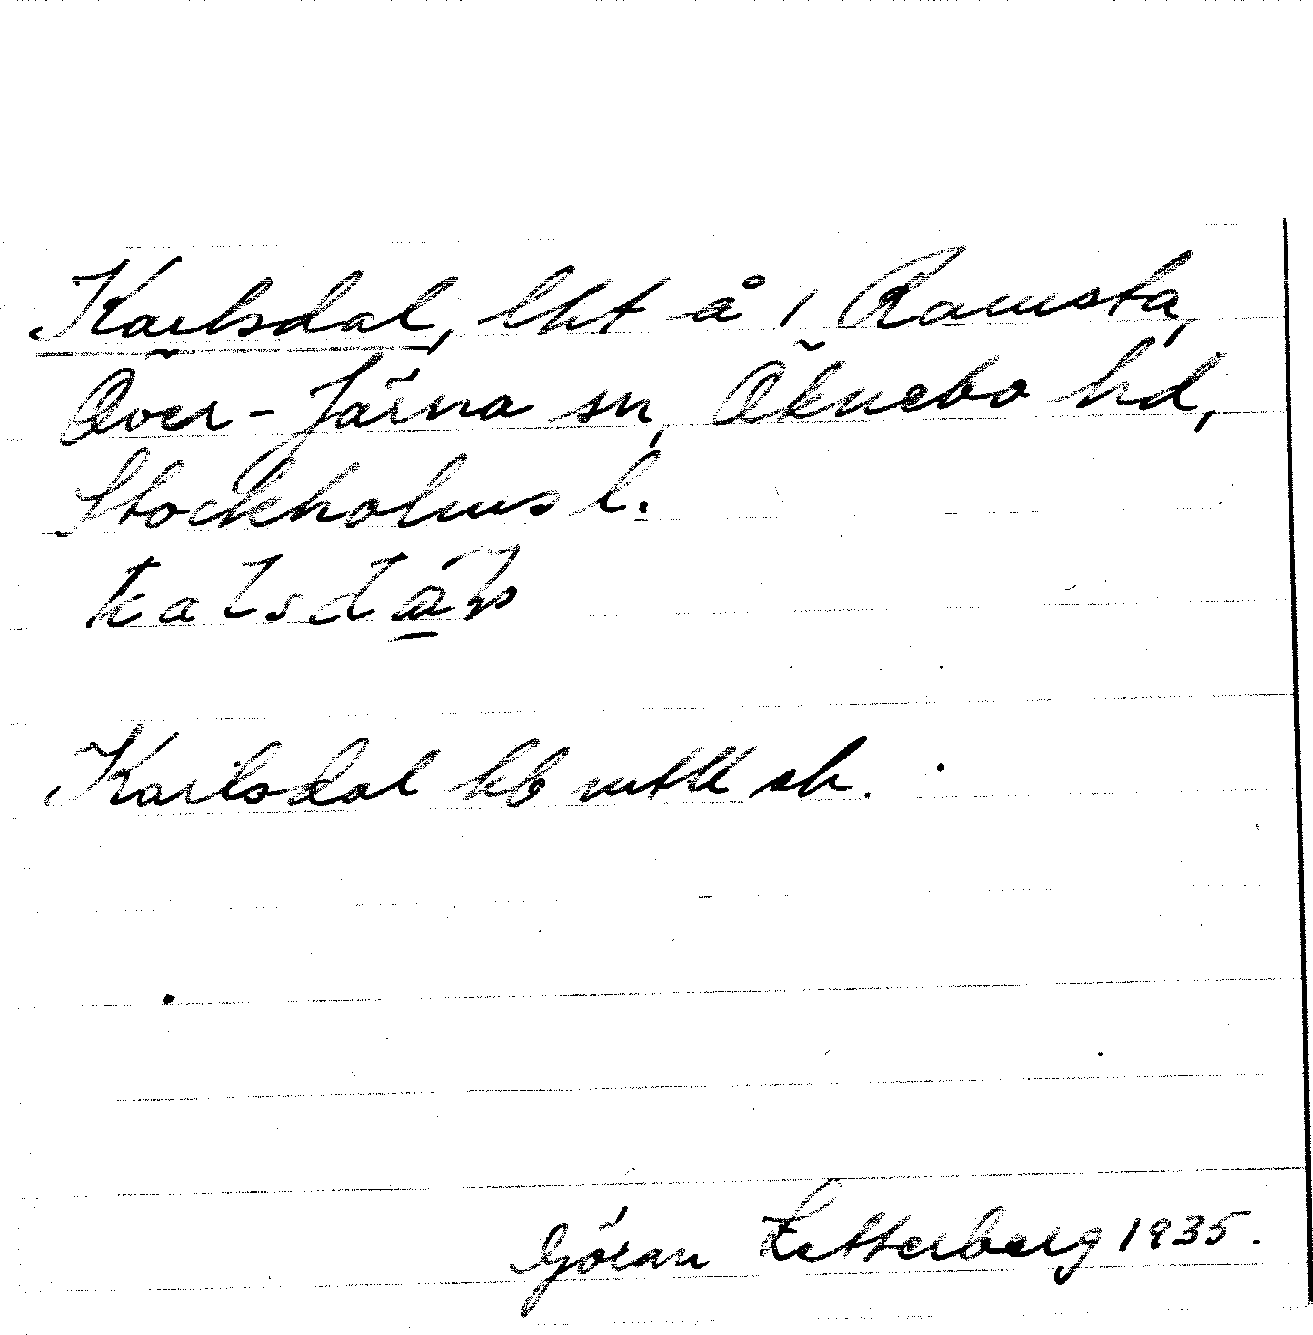 Karlsdal, lht å 1 Ramsta,
Över-Järna sn, Öknebo hd,
Stockholms l.
Karlsdal kb mtl sk.
Göran Zetterberg 1935.